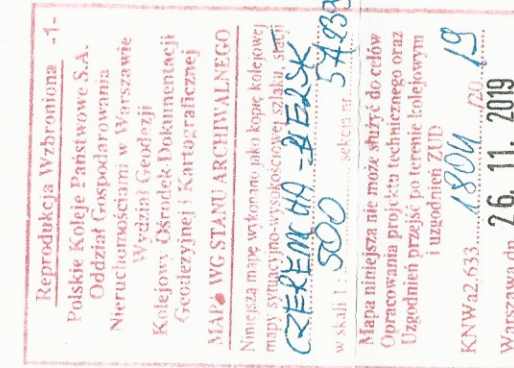 Reprodukcja Wzbroniona -1-
Polskie Koleje Państwowe S.A.
Oddział Gospodarowania
Nieruchomościami w Warszawie
Wydział Geodezji
Kolejowy Ośrodek Dokumentacji
Geodezyjnej i Kartograficznej
MAPA WG STANU ARCHIWALNEGO
Niniejszą mapę wykonano jako kopię kolejowej
mapy sytuacyjno-wysokościowej szlaku, stacji
CZEREMCHA-BIELSK
w skali 1: 500 sekcja nr 57A239
Mapa niniejsza nie może służyć do celów
Opracowania projektu technicznego oraz
Uzgodnień przejść po terenie kolejowym
i uzgodnień ZUD
KNWa2.633. 1804 /20 19
Warszawa dn. 26. 11. 2019